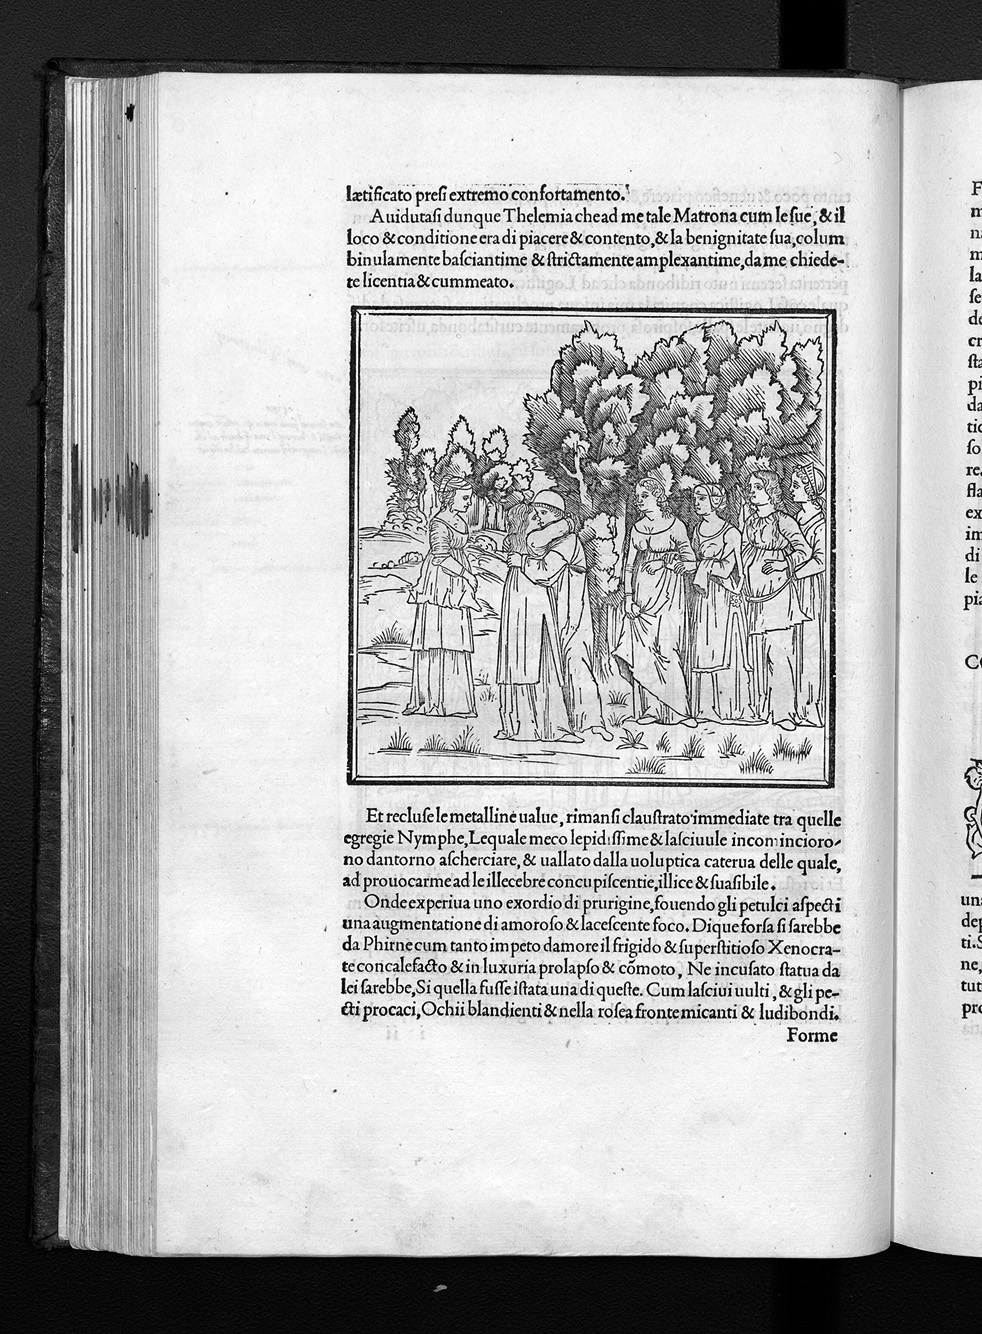 lætificato presi extremo confortamento.
Auidutasi dunque Thelemia che ad me tale Matrona cum le sue, & il
loco & conditione era di piacere & contento, & la benignitate sua, colum
binulamente basciantime & strictamente amplexantime, da me chiede-
te licentia & cummeato.
Et recluse le metalline ualue, rimansi claustrato immediate tra quelle
egregie Nymphe, Lequale meco lepidissime & lasciuule incomincioro-
no dantorno ascherciare, & uallato dalla uoluptica caterua delle quale,
ad prouocarme ad le illecebre concupiscentie, illice & suasibile.
Onde experiua uno exordio di prurigine, fouendo gli petulci aspecti
una augmentatione di amoroso & lacescente foco. Dique forsa si sarebbe
da Phirne cum tanto impeto damore il frigido & superstitioso Xenocra-
te concalefacto & in luxuria prolapso & cõmoto, Ne incusato statua da
lei sarebbe, Si quella fusse istata una di queste. Cum lasciui uulti, & gli pe-
cti procaci, Ochii blandienti & nella rosea fronte micanti & ludibondi.
Forme